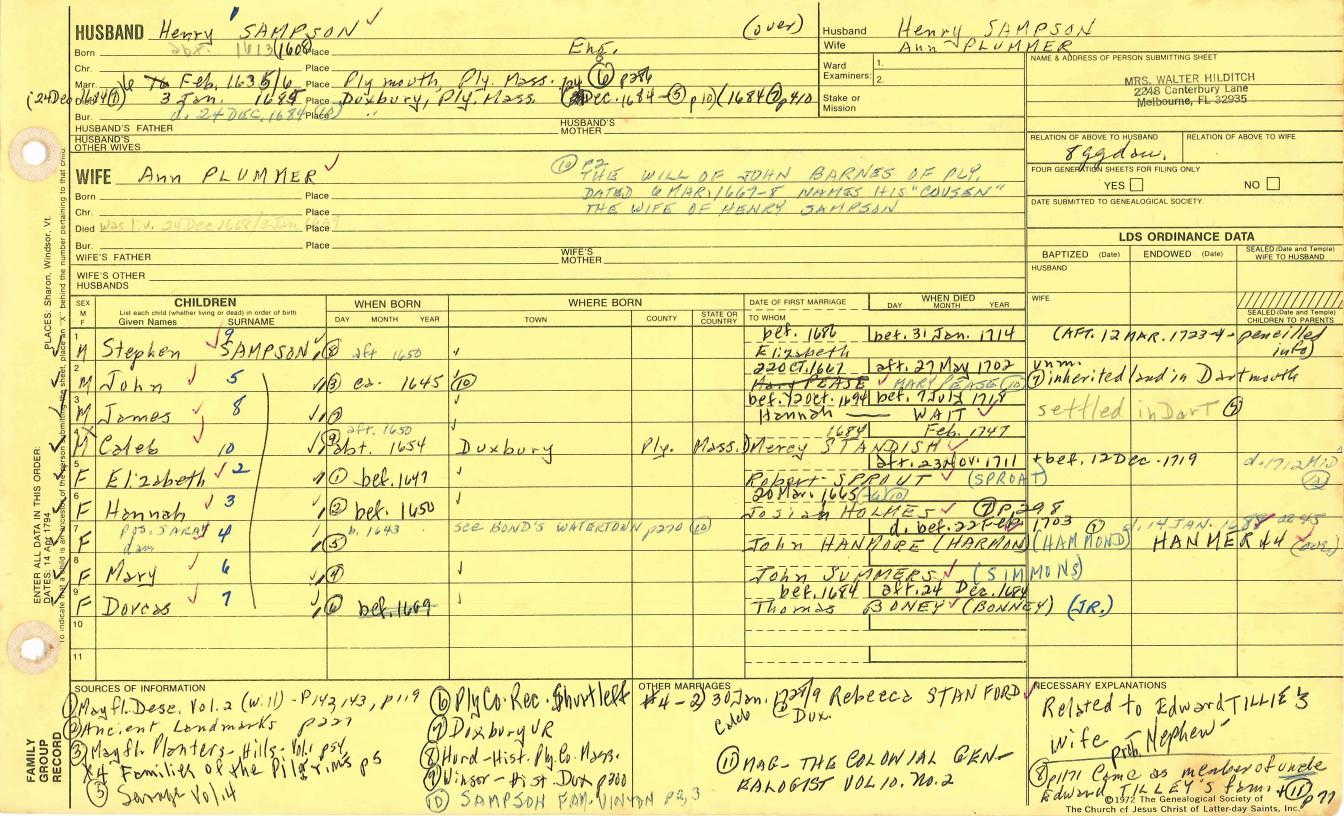 HUSBAND Henry SAMPSON (over)
Born abt. 1613 (1608) Place Eng.
Chr. Place
Marr. 6 Feb. 1635/6 Place Plymouth, Ply. Mass. ⑥ p286
(24 Dec 1684 ⑦) 3 Jan. 1685 Place Duxbury, Ply. Mass. Dec. 1684 - ⑤ p10) (1684 p410
Bur. d. 24 DEC. 1684 Place "
HUSBAND'S FATHER HUSBAND'S MOTHER
HUSBAND'S OTHER WIVES
Husband Henry SAMPSON
Wife Ann PLUMMER
Ward Examiners: 1. 2.
Stake or Mission
NAME & ADDRESS OF PERSON SUBMITTING SHEET
MRS. WALTER HILDITCH
2248 Canterbury Lane
Melbourne, FL 32935
RELATION OF ABOVE TO HUSBAND RELATION OF ABOVE TO WIFE
8ggdau.
FOUR GENERATION SHEETS FOR FILING ONLY
YES NO
DATE SUBMITTED TO GENEALOGICAL SOCIETY
WIFE Ann PLUMMER
⑩ p2
THE WILL OF JOHN BARNES OF PLY,
DATED 6 MAR. 1667-8 NAMES HIS "COUSEN"
THE WIFE OF HENRY SAMPSON
Born Place
Chr. Place
Died was l.v. 24 Dec 1684/3 Jan Place
Bur. Place
WIFE'S FATHER WIFE'S MOTHER
WIFE'S OTHER HUSBANDS
LDS ORDINANCE DATA
BAPTIZED (Date) ENDOWED (Date) SEALED (Date and Temple) WIFE TO HUSBAND
HUSBAND
WIFE
SEALED (Date and Temple) CHILDREN TO PARENTS
SEX M F CHILDREN WHEN BORN WHERE BORN DATE OF FIRST MARRIAGE WHEN DIED
List each child (whether living or dead) in order of birth
Given Names SURNAME DAY MONTH YEAR TOWN COUNTY STATE OR COUNTRY TO WHOM DAY MONTH YEAR
1 M Stephen 9 SAMPSON ⑧ aft 1650 bef. 1686 bef. 31 Jan. 1714 (AFT. 12 MAR. 1723-4 - pencilled info)
Elizabeth
2 M John 5 ③ ca. 1645 ⑩ 22 OCT. 1667 aft. 27 May 1702 unm.
Mary PEASE MARY PEASE (10) inherited land in Dartmouth
3 M James 8 bef. 12 Oct. 1694 bef. 7 July 1718 settled in Dart
Hannah — WAIT
4 M Caleb 10 ⑨ aft. 1650 abt. 1654 Duxbury Ply. Mass. 1684 Feb. 1747
Mercy STANDISH
5 F Elizabeth 2 ① bef. 1647 aft. 23 Nov. 1711 + bef. 12 Dec. 1719 d. 1712 Mid
Robert SPROUT (SPROAT)
6 F Hannah 3 ② bef. 1650 20 Mar. 1665/66 (10)
Josiah HOLMES ⑦ p. 298
7 F pos. SARAH dau 4 ⑤ b. 1643 SEE BOND'S WATERTOWN p270 ⑩ d. bef. 22 Feb 1703 ① d. 14 JAN.
John HANMORE (HARMON) (HAMMOND) HANMER (over)
8 F Mary 6 ④
John SUMMERS (SIMMONS)
9 F Dorcas 7 ⑥ bef. 1669 bef. 1684 aft. 24 Dec. 1684
Thomas BONEY (BONNEY) (JR.)
10
11
SOURCES OF INFORMATION
① Mayfl. Desc. Vol. 2 (Will) - P142, 143, p119
② Ancient Landmarks p227
③ Mayfl. Planters - Hills - Vol. 1 p54
X4 Families of the Pilgrims p5
⑤ Savage Vol. 4
⑥ Ply Co. Rec. Shurtleff
⑦ Duxbury VR
⑧ Hurd - Hist. Ply. Co. Mass.
⑨ Winsor - Hist. Dux p300
⑩ SAMPSON FAM. VINTON P2, 3
OTHER MARRIAGES
#4 - 2) 30 Jan. 1728/9 Rebecca STANFORD
Caleb Dux.
⑪ MAG - THE COLONIAL GEN-
EALOGIST VOL 10. NO. 2
NECESSARY EXPLANATIONS
Related to Edward TILLIE'S
Wife prob. Nephew
⑧ p1171 Came as member of uncle
Edward TILLEY'S fam. + ⑪ p 77
©1972 The Genealogical Society of
The Church of Jesus Christ of Latter-day Saints, Inc.
PLACES: Sharon, Windsor, Vt.
ENTER ALL DATA IN THIS ORDER:
DATES: 14 Apr 1794
FAMILY GROUP RECORD